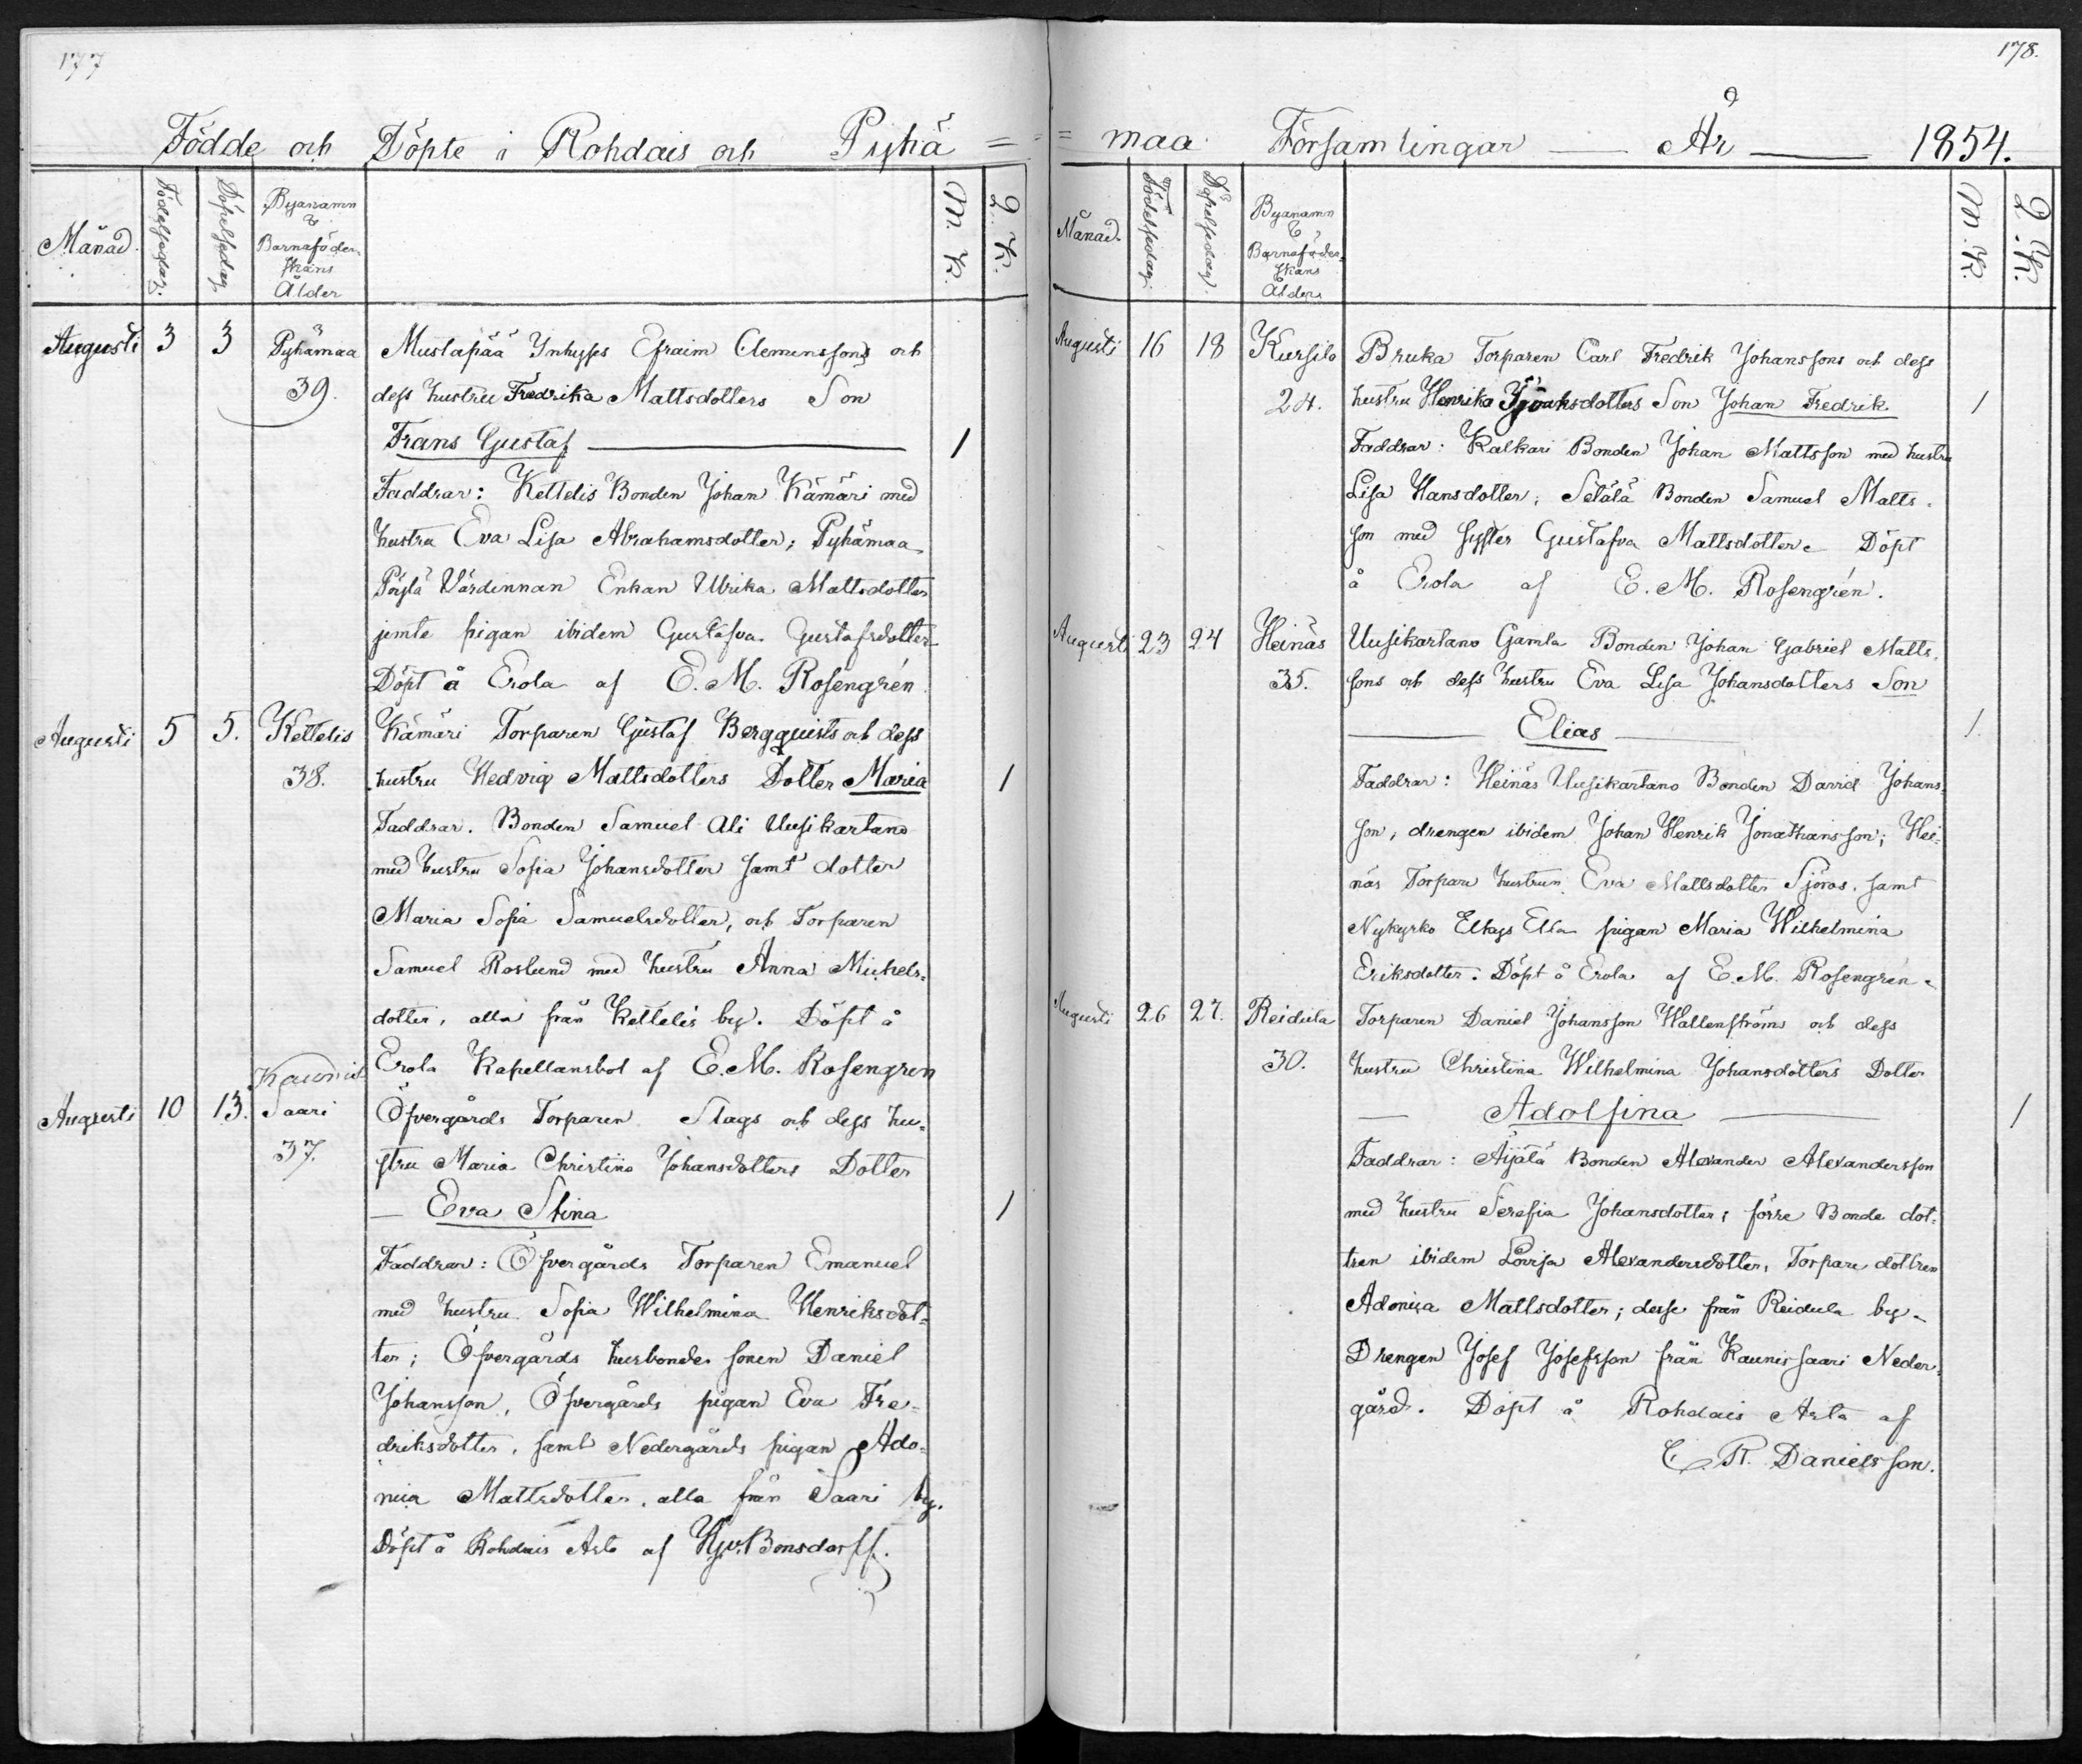 177
Födde och Döpte i Rohdais och Pyhä =
Månad.
Födelsedag.
Döpelsedag.
Byanamn
&
Barnaföder-
skans
Ålder
M. K.
Q. K.
Augusti 3 3 Pyhämaa Mustapää Inhyses Efraim Clemenssons och
39. dess hustru Fredrika Mattsdotters Son
Frans Gustaf 1
Faddrar: Kettelis Bonden Johan Kämäri med
hustru Eva Lisa Abrahamsdotter; Pyhämaa
Värdinnan Enkan Ulrika Mattsdotter
jemte pigan ibidem Gustafva Gustafsdotter
Döpt å Erola af E. M. Rosengrén
Augusti 5 5. Kettelis Kämäri Torparen Gustaf Bergquists och dess
38. hustru Hedvig Mattsdotters Dotter Maria 1
Faddrar. Bonden Samuel Ali Uusikartano
med hustru Sofia Johansdotter samt dotter
Maria Sofia Samuelsdotter, och Torparen
Samuel Roslund med hustru Anna Michels-
dotter, alla från Kettelis by. Döpt å
Erola Kapellansbol af E. M. Rosengren
Kaunis
Augusti 10 13. Saari Öfvergårds Torparen Slags och dess hu-
37. stru Maria Christina Johansdotters Dotter
Eva Stina 1
Faddrar: Öfvergårds Torparen Emanuel
med hustru Sofia Wilhelmina Henriksdot-
ter; Öfvergårds husbonde sonen Daniel
Johansson, Öfvergårds pigan Eva Fre-
driksdotter, samt Nedergårds pigan Ado-
Mattsdotter, alla från Saari by.
Döpt å Rohdais Arla af Bonsdorff.
178.
= maa Församlingar År 1854.
Månad.
Födelsedag.
Döpelsedag.
Byanamn
&
Barnaföder-
skans
Ålder
M. K.
Q. K.
Augusti 16 18 Kursilo Bruka Torparen Carl Fredrik Johanssons och dess
24. hustru Henrika Son Johan Fredrik 1
Faddrar: Kalkari Bonden Johan Mattsson med hustru
Lisa Hansdotter; Setälä Bonden Samuel Matts-
son med syster Gustafva Mattsdotter. Döpt
å Erola af E. M. Rosengrén.
Augusti 23 24 Heinäs Uusikartano Gamla Bonden Johan Gabriel Matts-
35. sons och dess hustru Eva Lisa Johansdotters Son
Elias 1.
Faddrar: Heinäs Uusikartano Bonden David Johans-
son, drengen ibidem Johan Henrik Jonathansson; Hei-
näs Torpare hustrun Eva Mattsdotter Sjöros, samt
Nykyrko Elkys Ella pigan Maria Wilhelmina
Eriksdotter. Döpt å Erola af E. M. Rosengrén.
Augusti 26 27. Reidula Torparen Daniel Johansson Wallenströms och dess
30. hustru Christina Wilhelmina Johansdotters Dotter
Adolfina 1
Faddrar: Äijälä Bonden Alexander Alexandersson
med hustru Serafia Johansdotter; förre Bonde dot-
tren ibidem Lovisa Alexandersdotter, Torpare dottren
Mattsdotter; desse från Reidula by.
Drengen Josef Josefsson från Kaunissaari Neder-
gård. Döpt å Rohdais Arla af
C. R. Danielsson.